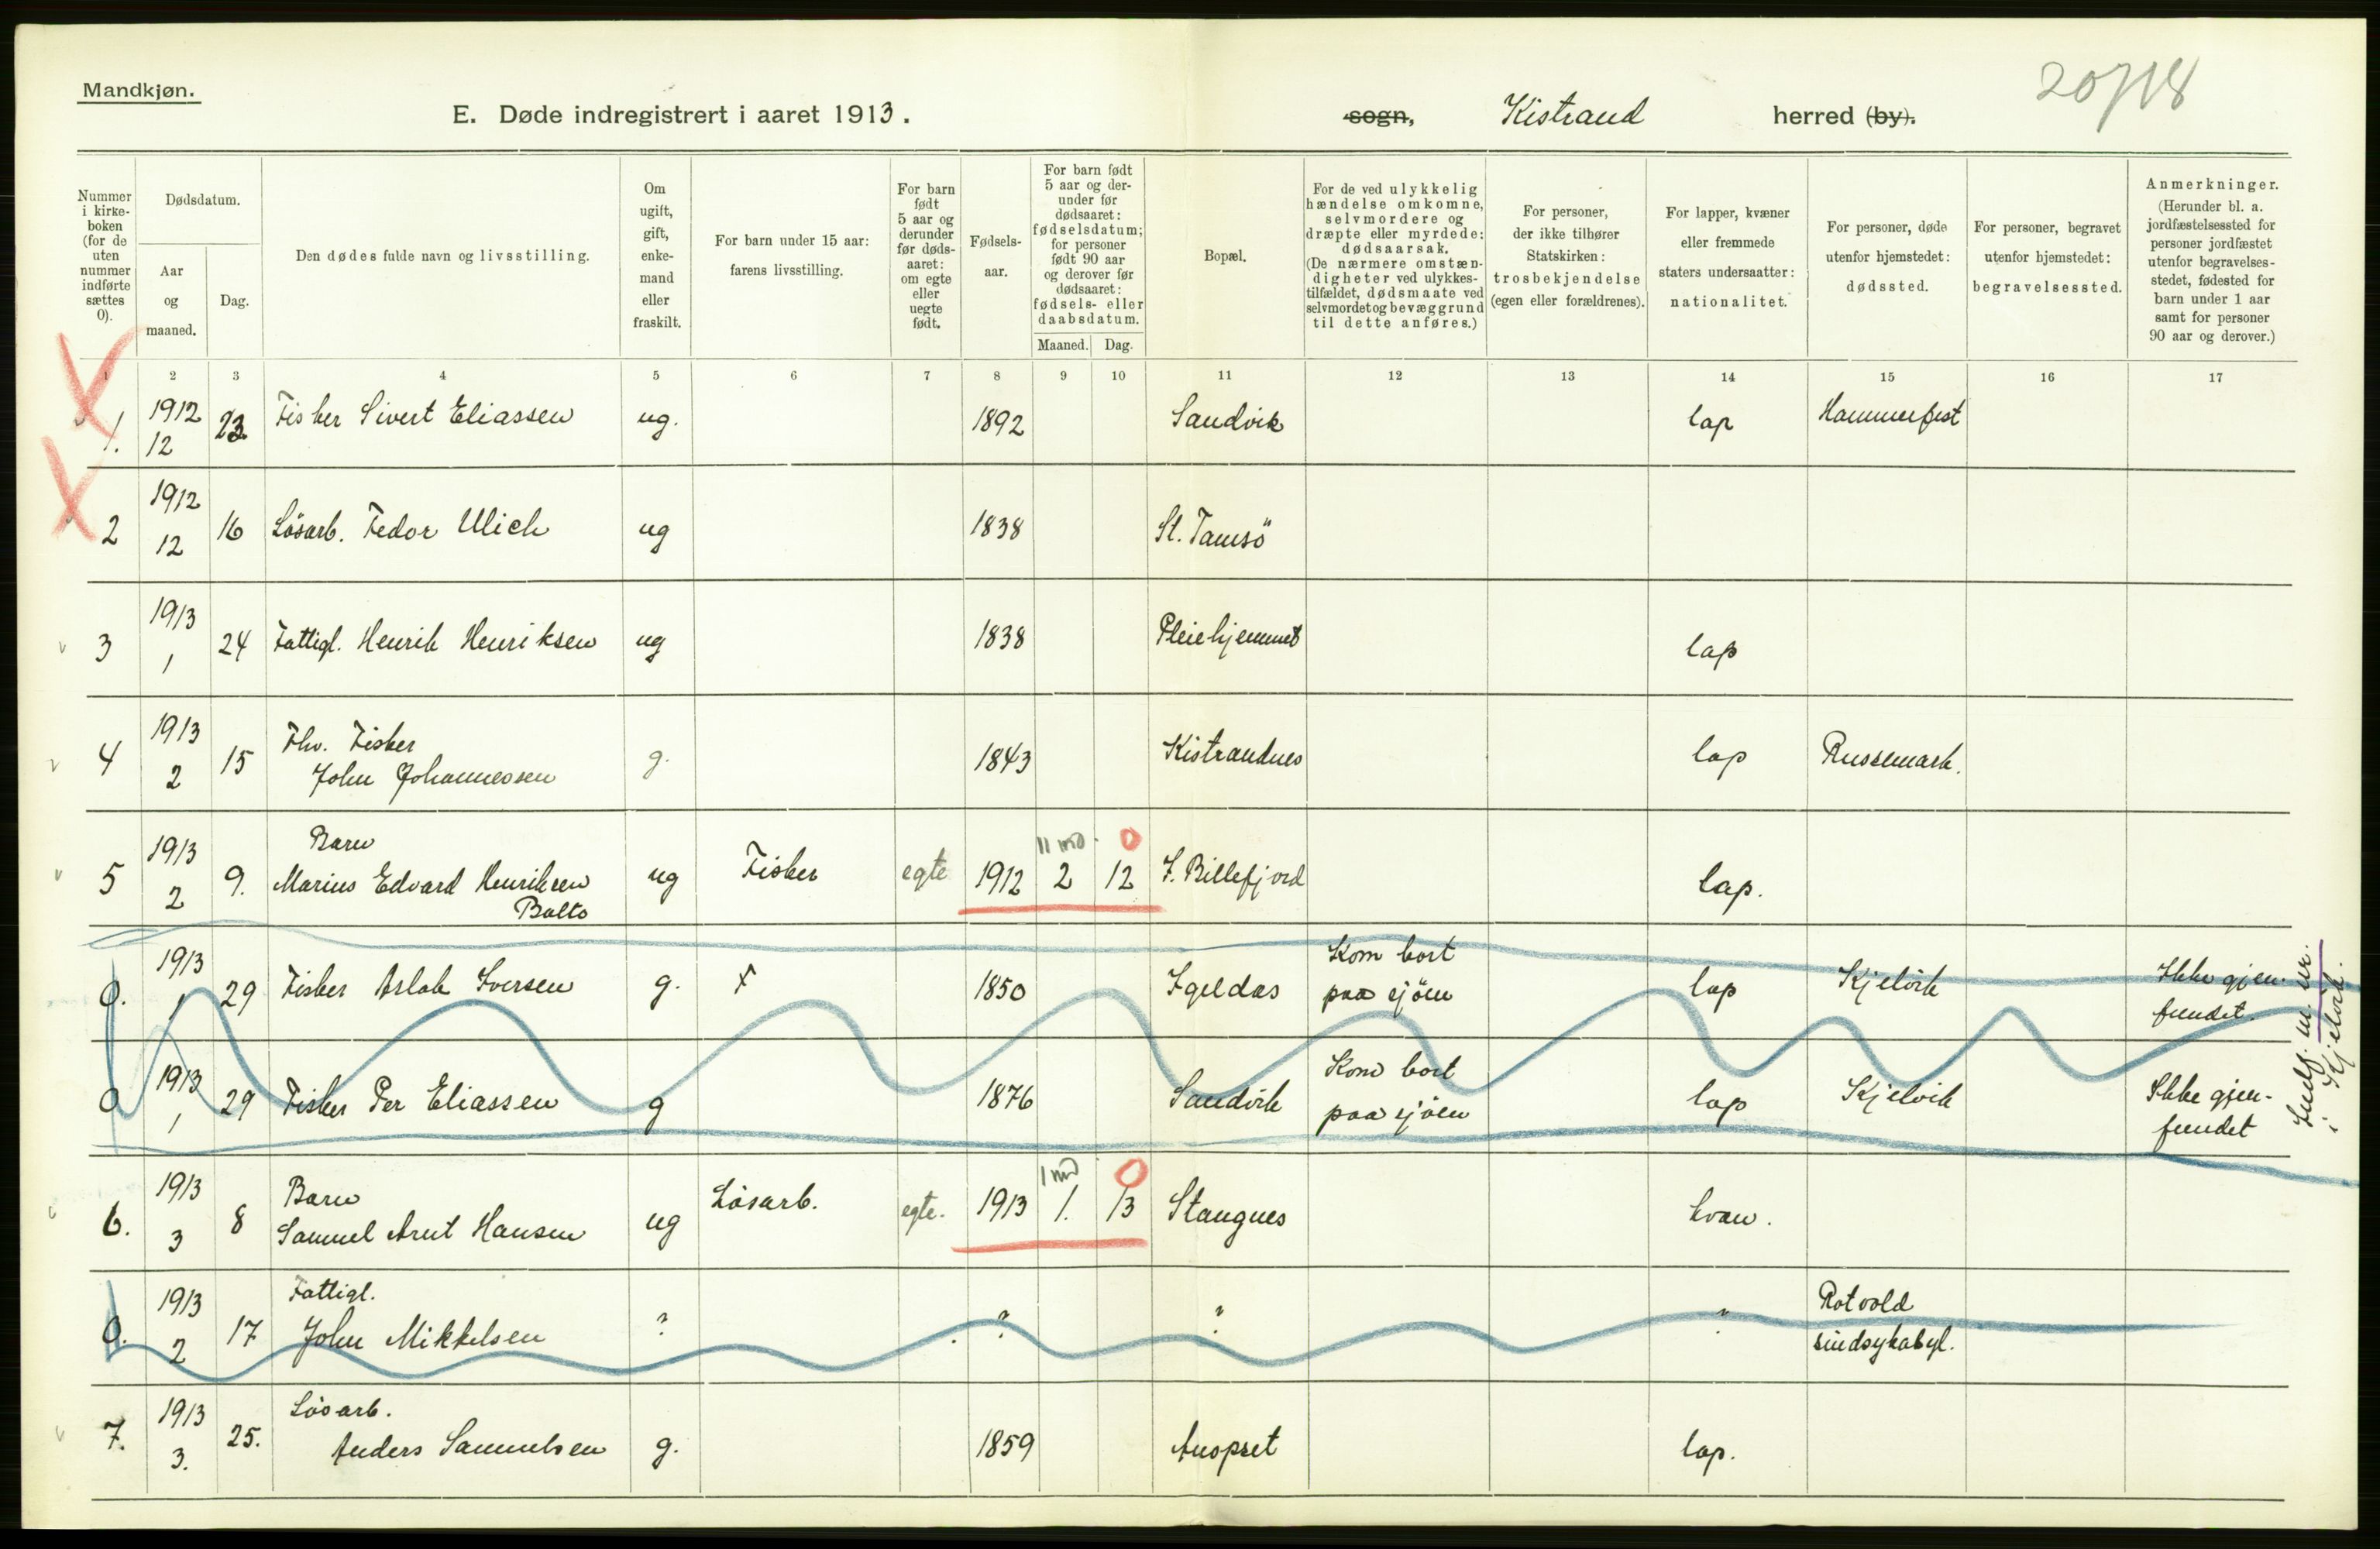 Mandkjøn.
E. Døde indregistrert i aaret 1913.
sogn, Kistrand herred (by).
20/18
Nummer i kirke- boken (for de uten nummer indførte sættes 0).
Dødsdatum.
Aar og maaned.
Dag.
Den dødes fulde navn og livsstilling.
Om ugift, gift, enke- mand eller fraskilt.
For barn under 15 aar: farens livsstilling.
For barn født 5 aar og derunder før døds- aaret: om egte eller uegte født.
Fødsels- aar.
For barn født 5 aar og der- under før dødsaaret: fødselsdatum; for personer født 90 aar og derover før dødsaaret: fødsels- eller daabsdatum.
Maaned. Dag.
Bopæl.
For de ved ulykkelig hændelse omkomne, selvmordere og dræpte eller myrdede: dødsaarsak. (De nærmere omstæn- digheter ved ulykkes- tilfældet, dødsmaate ved selvmord et og bevæggrund til dette anføres.)
For personer, der ikke tilhører Statskirken: trosbekjendelse (egen eller forældrenes).
For lapper, kvæner eller fremmede staters undersaatter: nationalitet.
For personer, døde utenfor hjemstedet: dødssted.
For personer, begravet utenfor hjemstedet: begravelsessted.
Anmerkninger. (Herunder bl. a. jordfæstelsessted for personer jordfæstet utenfor begravelses- stedet, fødested for barn under 1 aar samt for personer 90 aar og derover.)
1 2 3 4 5 6 7 8 9 10 11 12 13 14 15 16 17
1. 1912 12 23 Fisker Sivert Eliassen ug. 1892 Sandvik lap Hammerfest
2 1912 12 16 Lösarb. Fedor Ulich ug 1838 St. Tamsö
3 1913 1 24 Fattigl. Henrik Henriksen ug 1838 Pleiehjemmet lap
4 1913 2 15 Fhv. Fisker John Johannessen g. 1843 Kistrandnes lap Russemark.
5 1913 2 9. Barn Marius Edvard Henriksen Balto ug Fisker egte 1912 11 md. 2 0 12 I. Billefjord lap.
0. 1913 1 29 Fisker Aslak Iversen g. 1850 Igeldas Kom bort paa sjöen lap Kjelvik Ikke gjen- fundet.
0 1913 1 29 Fisker Per Eliassen g 1876 Sandvik Kom bort paa sjöen lap Kjelvik Ikke gjen- fundet
Indf. m. nr. i Kjelvik.
6. 1913 3 8 Barn Samuel Arnt Hansen ug Lösarb. egte. 1913 1 md 1. 0 13 Stangnes kvæn.
0. 1913 2 17 Fattigl. John Mikkelsen ? ? ? ? Rotvold sindsykeasyl.
7. 1913 3. 25. Lösarb. Anders Samuelsen g. 1859 lap.